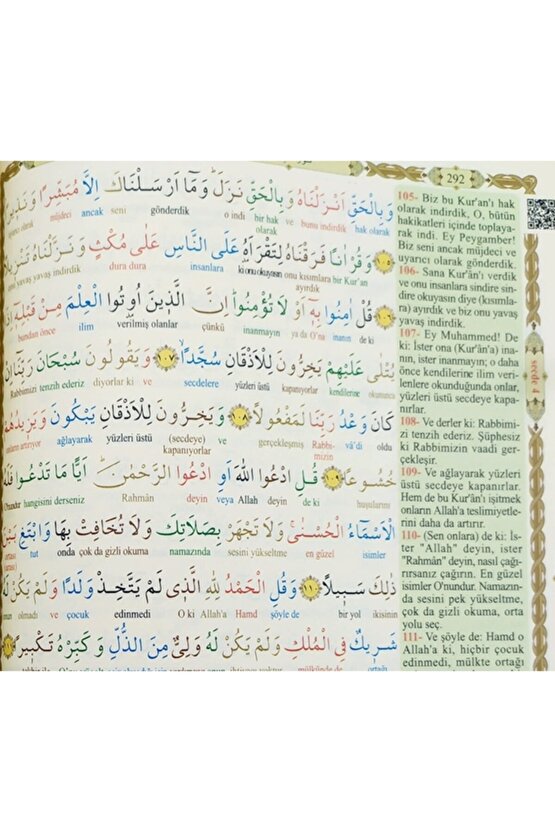 292
وَبِالْحَقِّ اَنْزَلْنَاهُ وَبِالْحَقِّ نَزَلَۜ وَمَٓا اَرْسَلْنَاكَ اِلَّا مُبَشِّرًا وَنَذِيرًا
hak olarak bunu indirdik ve bir hak olarak o indi gönderdik seni ancak müjdeci
وَقُرْاٰنًا فَرَقْنَاهُ لِتَقْرَاَهُ عَلَى النَّاسِ عَلٰى مُكْثٍ وَنَزَّلْنَاهُ تَنْزِيلًا
bir Kur'an onu kısımlara ki onu okuyasın insanlara dura dura yavaş yavaş indirdik
قُلْ اٰمِنُوا بِهٖٓ اَوْ لَا تُؤْمِنُواۜ اِنَّ الَّذٖينَ اُوتُوا الْعِلْمَ مِنْ قَبْلِهٖٓ اِذَا
de ki inanın O'na ya da inanmayın çünkü verilmiş olanlar ilim bundan önce
يُتْلٰى عَلَيْهِمْ يَخِرُّونَ لِلْاَذْقَانِ سُجَّدًاۙ ١٠٧ وَيَقُولُونَ سُبْحَانَ رَبِّنَٓا اِنْ
okunduğu kendilerine kapanıyorlar yüzleri üstü secdelere ve diyorlar ki tenzih ederiz Rabbimizi
كَانَ وَعْدُ رَبِّنَا لَمَفْعُولًا ١٠٨ وَيَخِرُّونَ لِلْاَذْقَانِ يَبْكُونَ وَيَزٖيدُهُمْ
oldu va'di Rabbimizin gerçekleşmiş ve (secdeye) kapanıyorlar yüzleri üstü ağlayarak onların artırıyor
خُشُوعًا ١٠٩ قُلِ ادْعُوا اللّٰهَ اَوِ ادْعُوا الرَّحْمٰنَۜ اَيًّا مَا تَدْعُوا فَلَهُ
huşularını de ki deyin Allah veya deyin Rahmân hangisini derseniz O'nundur
الْاَسْمَٓاءُ الْحُسْنٰىۚ وَلَا تَجْهَرْ بِصَلَاتِكَ وَلَا تُخَافِتْ بِهَا وَابْتَغِ بَيْنَ
isimler en güzel sesini yükseltme namazında çok da gizli okuma onda tut
ذٰلِكَ سَبٖيلًا ١١٠ وَقُلِ الْحَمْدُ لِلّٰهِ الَّذٖي لَمْ يَتَّخِذْ وَلَدًا وَلَمْ يَكُنْ لَهُ
ikisinin bir yol şöyle de Hamd O ki Allah'a edinmedi çocuk ve olmadı
شَرٖيكٌ فِي الْمُلْكِ وَلَمْ يَكُنْ لَهُ وَلِيٌّ مِنَ الذُّلِّ وَكَبِّرْهُ تَكْبٖيرًا
ortağı mülkünde
105- Biz bu Kur'an'ı hak
olarak indirdik. O, bütün
hakikatleri içinde toplaya-
rak indi. Ey Peygamber!
Biz seni ancak müjdeci ve
uyarıcı olarak gönderdik.
106- Sana Kur'an'ı verdik
ve onu insanlara sindire sin-
dire okuyasın diye (kısımla-
ra) ayırdık ve biz onu yavaş
yavaş indirdik.
107- Ey Muhammed! De
ki: İster ona (Kur'ân'a) ina-
nın, ister inanmayın; o daha
önce kendilerine ilim veri-
lenlere okunduğunda onlar,
yüzleri üstü secdeye kapa-
nırlar.
108- Ve derler ki: Rabbimi-
zi tenzih ederiz. Şüphesiz
ki Rabbimizin vaadi ger-
çekleşir.
109- Ve ağlayarak yüzleri
üstü secdeye kapanırlar.
Hem de bu Kur'ân'ı işitmek
onların Allah'a teslimiyetle-
rini daha da artırır.
110- (Sen onlara) de ki: İs-
ter "Allah" deyin, ister
"Rahmân" deyin, nasıl çağı-
rırsanız çağırın. En güzel
isimler O'nundur. Namazın-
da sesini pek yükseltme,
çok da gizli okuma, orta
yolu seç.
111- Ve şöyle de: Hamd o
Allah'a ki, hiçbir çocuk
edinmedi, mülkte ortağı
secde 4